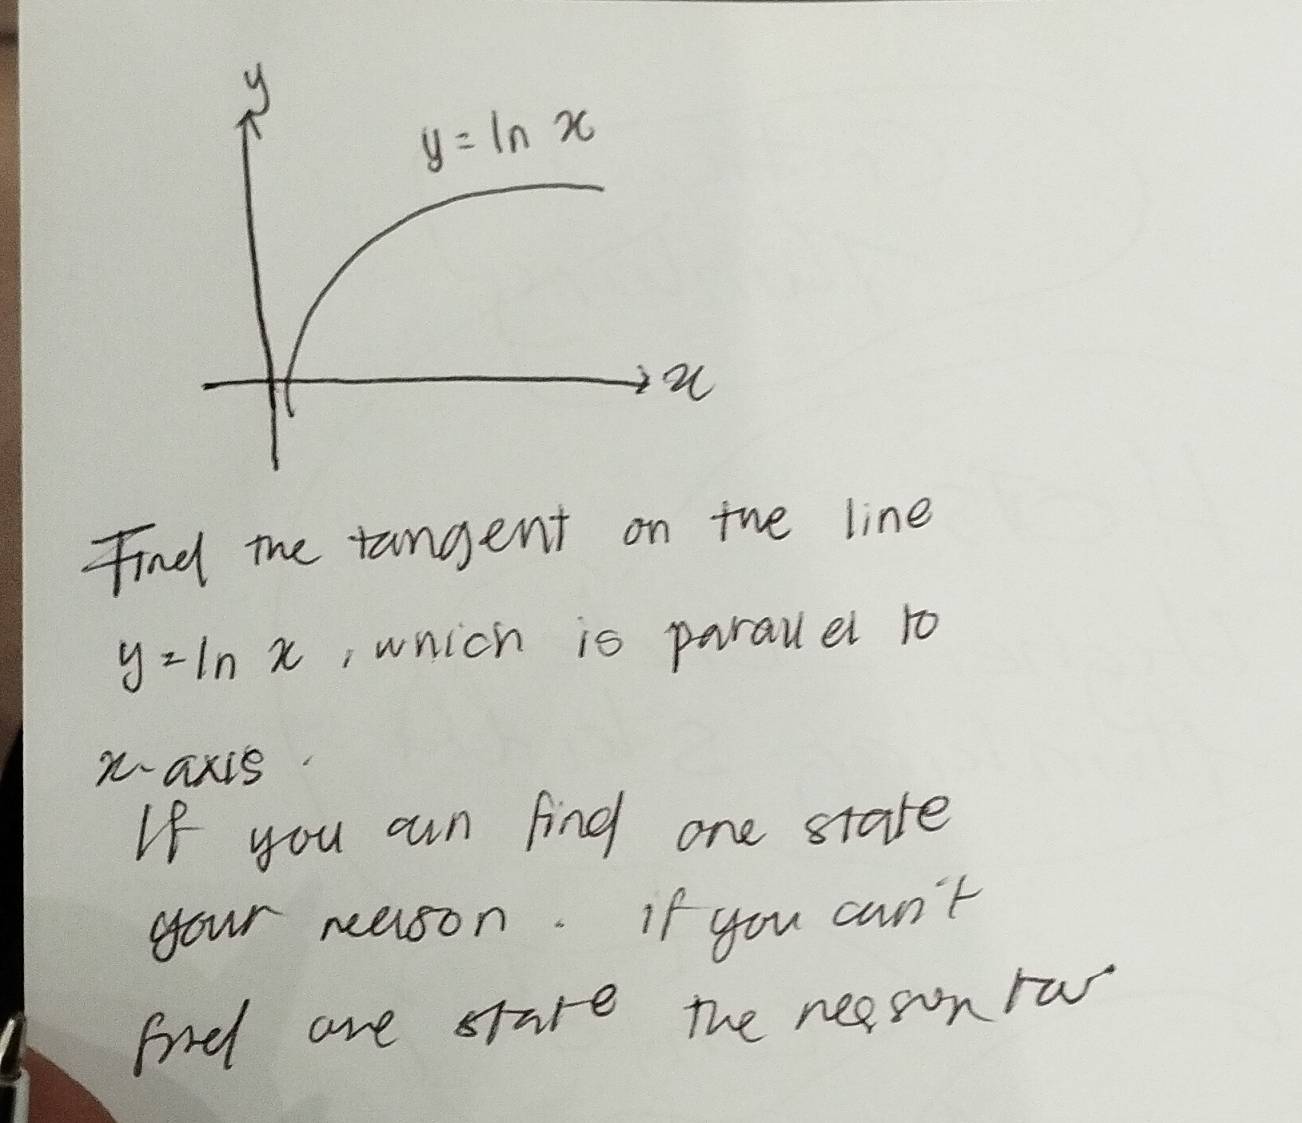 y
y = ln x
x
Find the tangent on the line
y = ln x , which is parallel to
x-axis .
If you can find one state
your reason . if you can't
find one state the reason too